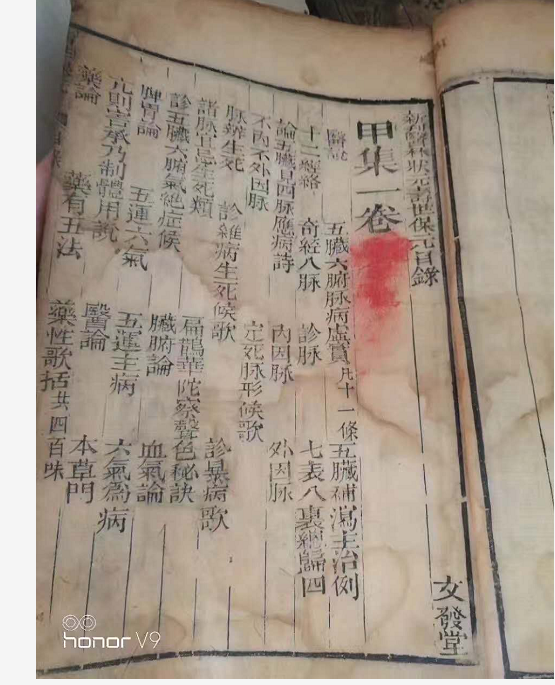 新鍥醫林狀元壽世保元目錄
甲集一卷
醫說 五臟六腑脉病虛實凡十一條 五臟補瀉主治例
十二經絡 奇經八脉 診脉 七表八裏總歸四
論五臟四脉應病詩 內因脉 外因脉
不內不外因脉 定死脉形候歌
脉辨生死 診雜病生死候歌 診暴病歌
諸脉宜忌生死類 扁鵲華陀察聲色秘訣
診五臟六腑氣絕症候 臟腑論 血氣論
脾胃論 五運六氣 五運主病 六氣為病
亢則害承乃制體用說 醫論
藥論 藥有五法 藥性歌括共四百味 本草門
文發堂
honor V9